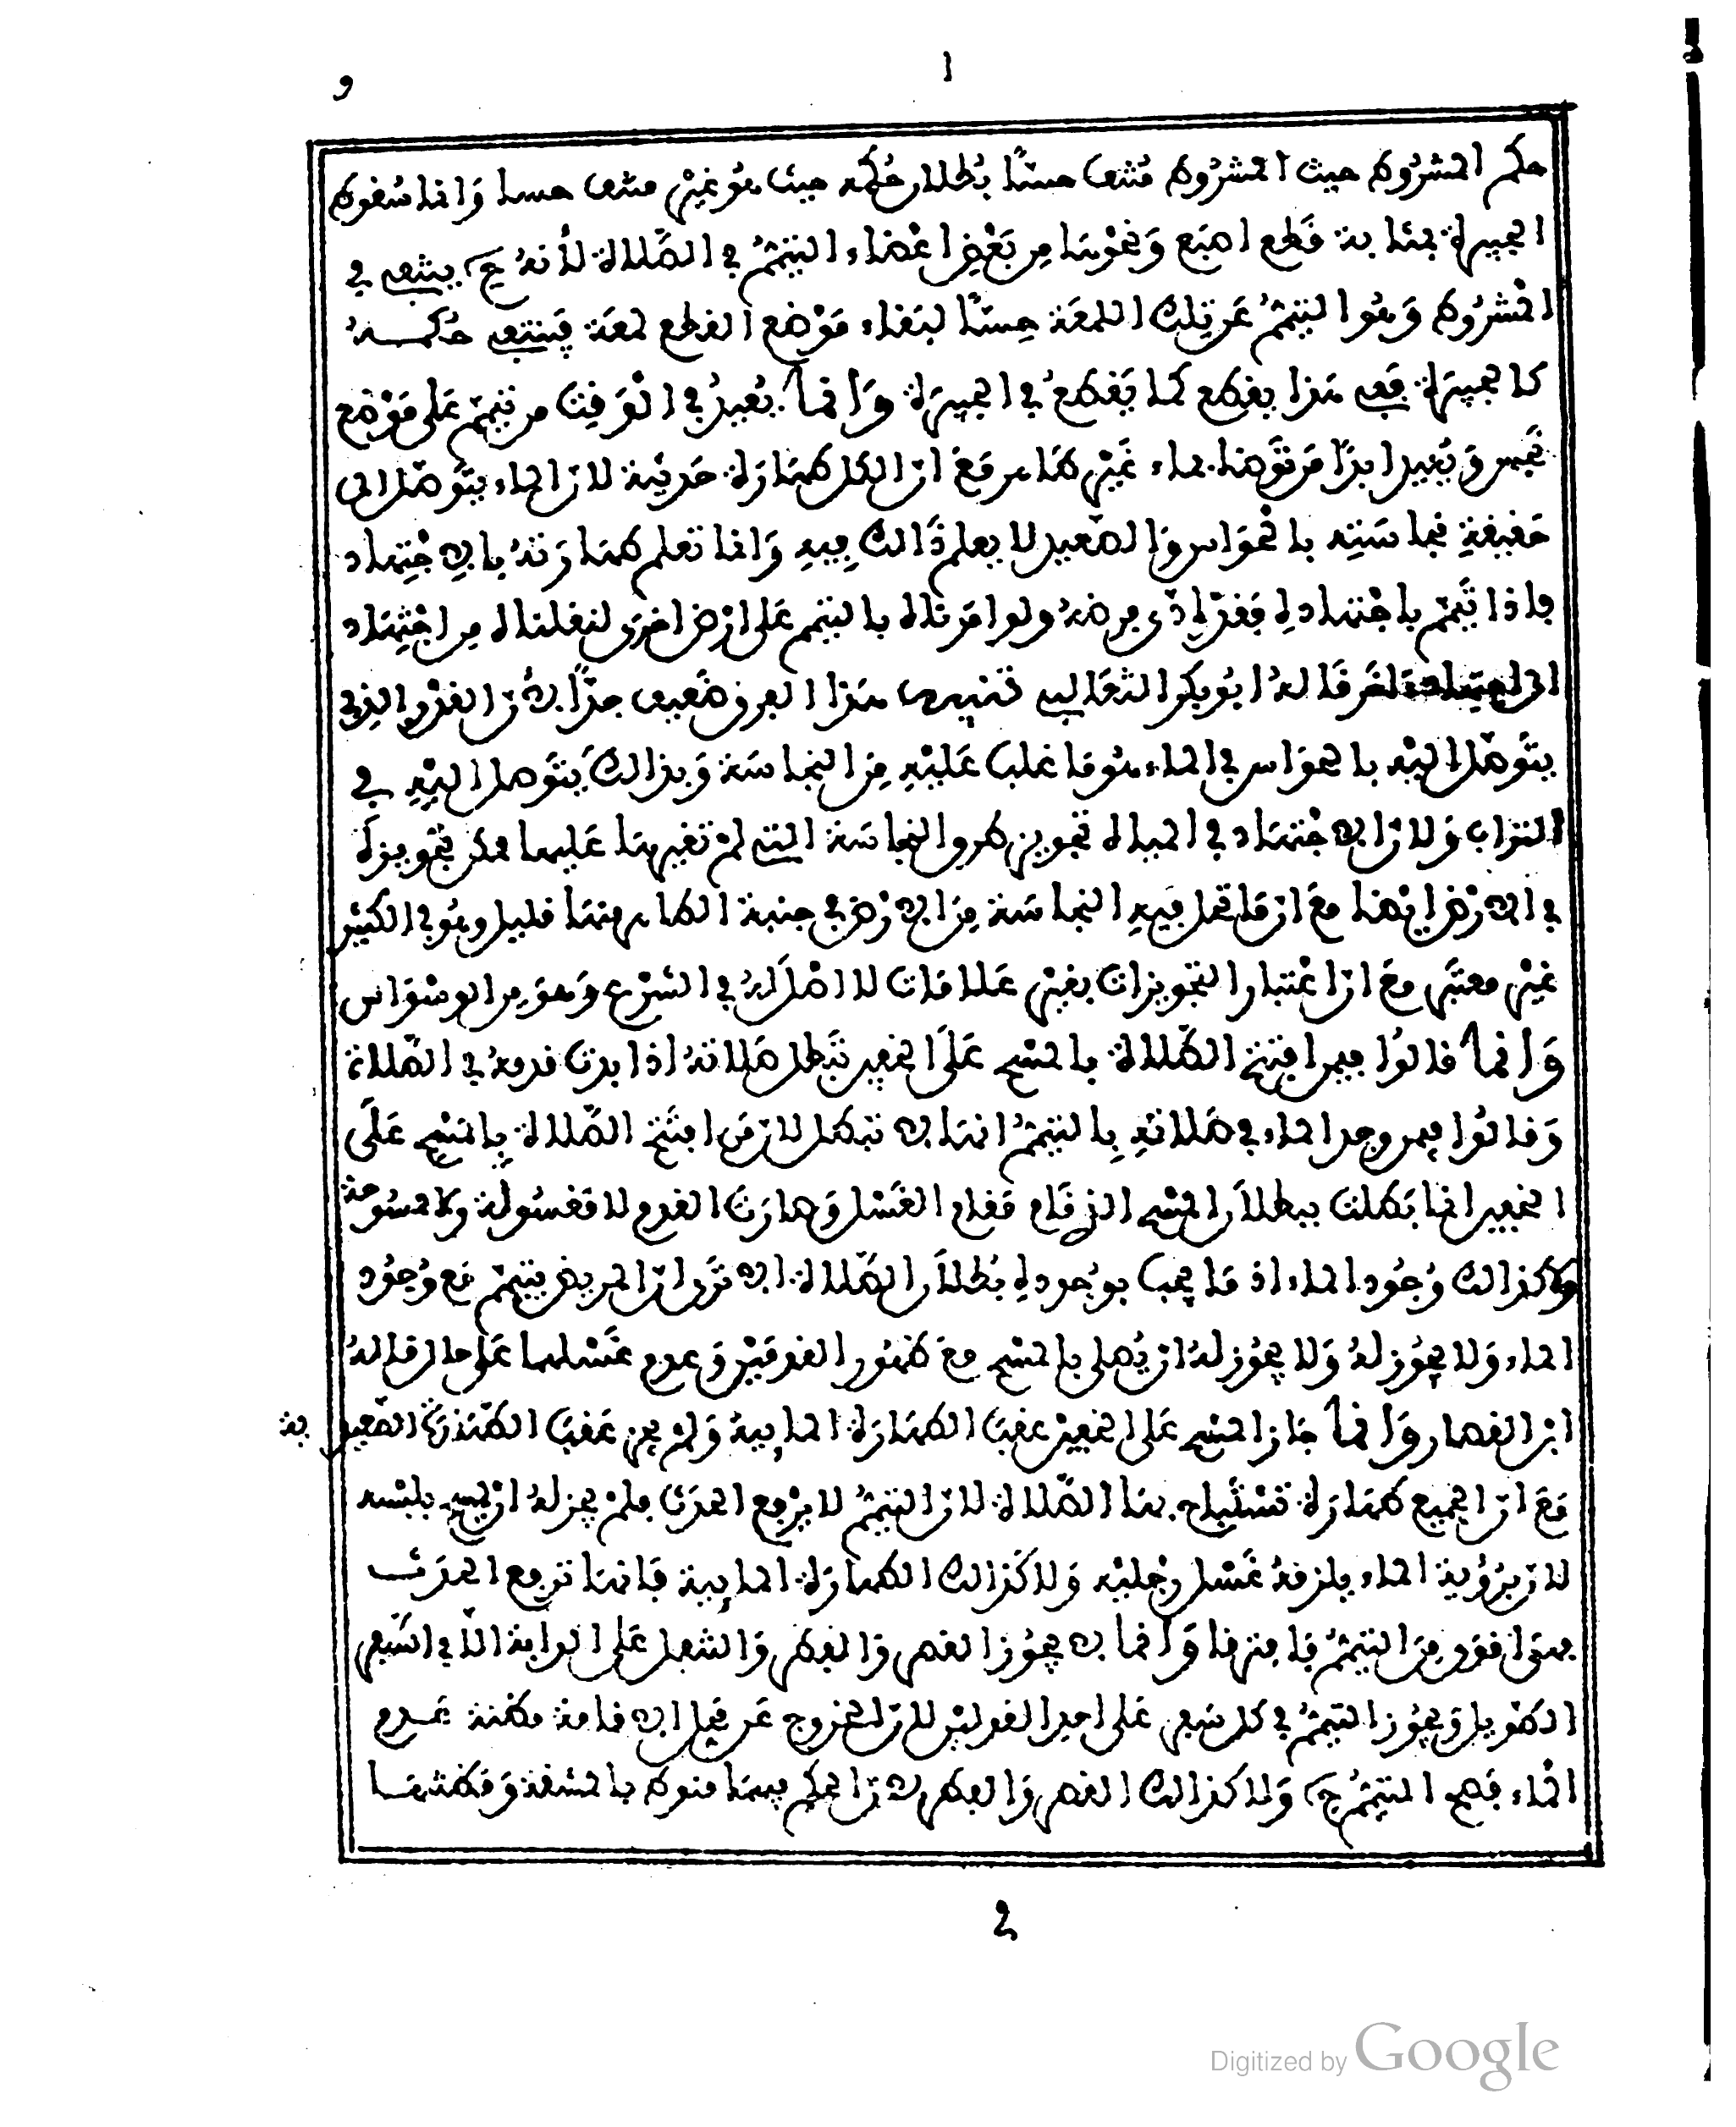 و ا
حكم المشروط حيث المشروط منتف حسا بطلان حكمه حيث هو غير منتف حسا وانما سقوط
الجبيرة بمثابة قطع اصبع ونحوها من بعض اعضاء التيمم في الصلاة لأنه ح ينتفي
المشروط وهو التيمم عن تلك اللمعة حسا لبقاء موضع القطع لمعة فينتفي حكمه
كالجبيرة ففي هذا يقطع كما يقطع في الجبيرة وانما يعيد في الوقت من تيمم على موضع
نجس ويعيد ابدا من توضا بماء غير طاهر مع ان الكل طهارة حدثية لان الماء يتوصل الى
حقيقة نجاسته بالحواس والصعيد لا يعلم ذالك فيه وانما تعلم طهارته بالاجتهاد
فاذا تيمم باجتهاده فقد ادى فرضه ولو امرناه بالتيمم على ارض اخرى لنقلناه من اجتهاد
الى اجتهاد اخر قاله ابو بكر الثعالبي تنبيه هذا الفرق ضعيف جدا لأن القدر الذي
يتوصل اليه بالحواس في الماء هو ما غلب عليه من النجاسة وبذالك يتوصل اليه في
التراب ولان الاجتهاد في المياه تجويز طرو النجاسة التي لم تغيرها عليها ممكن تجويزه
في الارض ايضا مع ان ما تحل فيه النجاسة من الارض في جنبة الطاهر منها قليل وهو في الكثير
غير معتبر مع ان اعتبار التجويزات بغير علامات لا اصل له في الشرع وهو من الوسواس
وانما قالوا فيمن افتتح الصلاة بالمسح على الخفين تبطل صلاته اذا بدت قدمه في الصلاة
وقالوا فيمن وجد الماء في صلاته بالتيمم انها لا تبطل لان من افتتح الصلاة بالمسح على
الخفين انما بطلت ببطلان المسح الذي قام مقام الغسل وصارت القدم لا مغسولة ولا ممسوحة
ولا كذالك وجود الماء اذ ما يجب بوجوده بطلان الصلاة الا ترى ان المريض يتيمم مع وجود
الماء ولا يجوز له ولا يجوز له ان يصلي بالمسح مع ظهور القدمين وعدم غسلهما على حال قاله
ابن القصار وانما جاز المسح على الخفين عقب الطهارة المائية ولم يجز عقب الطهارة الصعيدية
مع ان الجميع طهارة تستباح بها الصلاة لان التيمم لا يرفع الحدث فلم يجز له ان يمسح بلبسه
لان برؤية الماء يلزمه غسل رجليه ولا كذالك الطهارة المائية فانها ترفع الحدث
فهي اقوى من التيمم فافترقا وانما لا يجوز القصر والفطر والتنفل على الدابة الا في السفر
الطويل ويجوز التيمم في كل سفر على احد القولين لان الخروج عن محل الاقامة مظنة عدم
الماء فصح التيمم ح ولا كذالك القصر والفطر لان الحكم فيهما منوط بالمشقة ومظنتهما
2
Digitized by Google